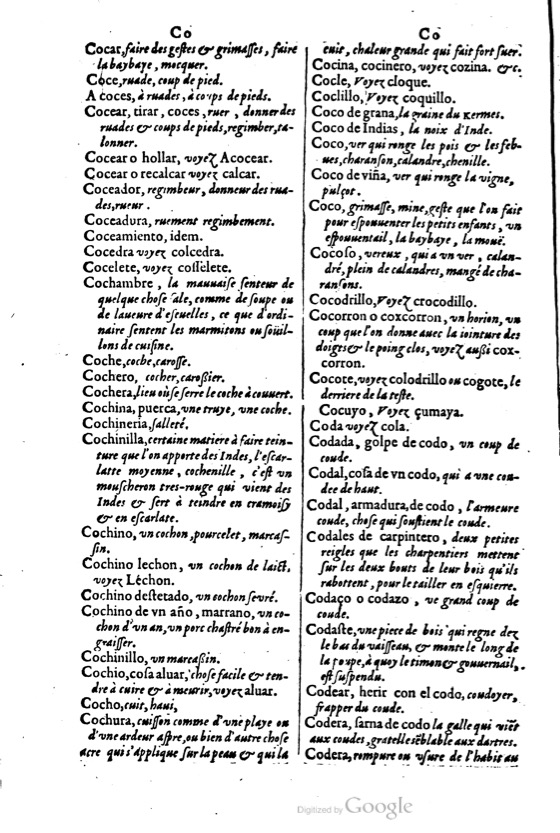 Co
Cocar, faire des gestes & grimasses, faire
la baybaye, mocquer.
Coce, ruade, coup de pied.
A coces, à ruades, à coups de pieds.
Cocear, tirar, coces, ruer, donner des
ruades & coups de pieds, regimber, ta-
lonner.
Cocear o hollar, voyez Acocear.
Cocear o recalcar voyez calcar.
Coceador, regimbeur, donneur des rua-
des, rueur.
Coceadura, ruement regimbement.
Coceamiento, idem.
Cocedra voyez colcedra.
Cocelete, voyez cosselete.
Cochambre, la mauuaise senteur de
quelque chose sale, comme de soupe ou
de laueure d'escuelles, ce que d'ordi-
naire sentent les marmitons ou soüil-
lons de cuisine.
Coche, coche, carosse.
Cochero, cocher, carossier.
Cochera, lieu où se serre le coche à couuert.
Cochina, puerca, vne truye, vne coche.
Cochineria, salleté.
Cochinilla, certaine matiere à faire tein-
ture que l'on apporte des Indes, l'escar-
latte moyenne, cochenille, c'est vn
moucheron tres-rouge qui vient des
Indes & sert à teindre en cramoisy
& en escarlate.
Cochino, vn cochon, pourcelet, marcas-
sin.
Cochino lechon, vn cochon de laict,
voyez Lechon.
Cochino destetado, vn cochon seuré.
Cochino de vn año, marrano, vn co-
chon d'vn an, vn porc chastré bon à en-
graisser.
Cochinillo, vn marcassin.
Cochio, cosa aluar, chose facile & ten-
dre à cuire & à meurir, voyez aluar.
Cocho, cuit, haui,
Cochura, cuisson comme d'vne playe ou
d'vne ardeur aspre, ou bien d'autre chose
acre qui s'applique sur la peau & qui la
Co
cuit, chaleur grande qui fait fort suer.
Cocina, cocinero, voyez cozina. &c.
Cocle, Voyez cloque.
Coclillo, Voyez coquillo.
Coco de grana, la graine du Kermes.
Coco de Indias, la noix d'Inde.
Coco, ver qui ronge les pois & les feb-
ues, charanson, calandre, chenille.
Coco de viña, ver qui ronge la vigne,
pulçot.
Coco, grimasse, mine, geste que l'on fait
pour espouuenter les petits enfants, vn
espouuentail, la baybaye, la mouë.
Cocoso, vereux, qui a vn ver, calan-
dré, plein de calandres, mangé de cha-
ransons.
Cocodrillo, Voyez crocodillo.
Cocorron o coxcorron, vn horion, vn
coup que l'on donne auec la iointure des
doigts & le poing clos, voyez aussi cox-
corron.
Cocote, voyez colodrillo ou cogote, le
derriere de la teste.
Cocuyo, Voyez çumaya.
Coda voyez cola.
Codada, golpe de codo, vn coup de
coude.
Codal, cosa de vn codo, qui a vne cou-
dee de haut.
Codal, armadura, de codo, l'armeure
coude, chose qui soustient le coude.
Codales de carpintero, deux petites
reigles que les charpentiers mettent
sur les deux bouts de leur bois qu'ils
rabottent, pour le tailler en esquierre.
Codaço o codazo, ve grand coup de
coude.
Codaste, vne piece de bois qui regne dez
le bas du vaisseau, & monte le long de
la poupe, à quoy le timon & gouuernail,
est suspendu.
Codear, herir con el codo, coudoyer,
frapper du coude.
Codera, sarna de codo la galle qui viēt
aux coudes, gratelle sēblable aux dartres.
Codera, rompure ou vsure de l'habit au
Digitized by Google